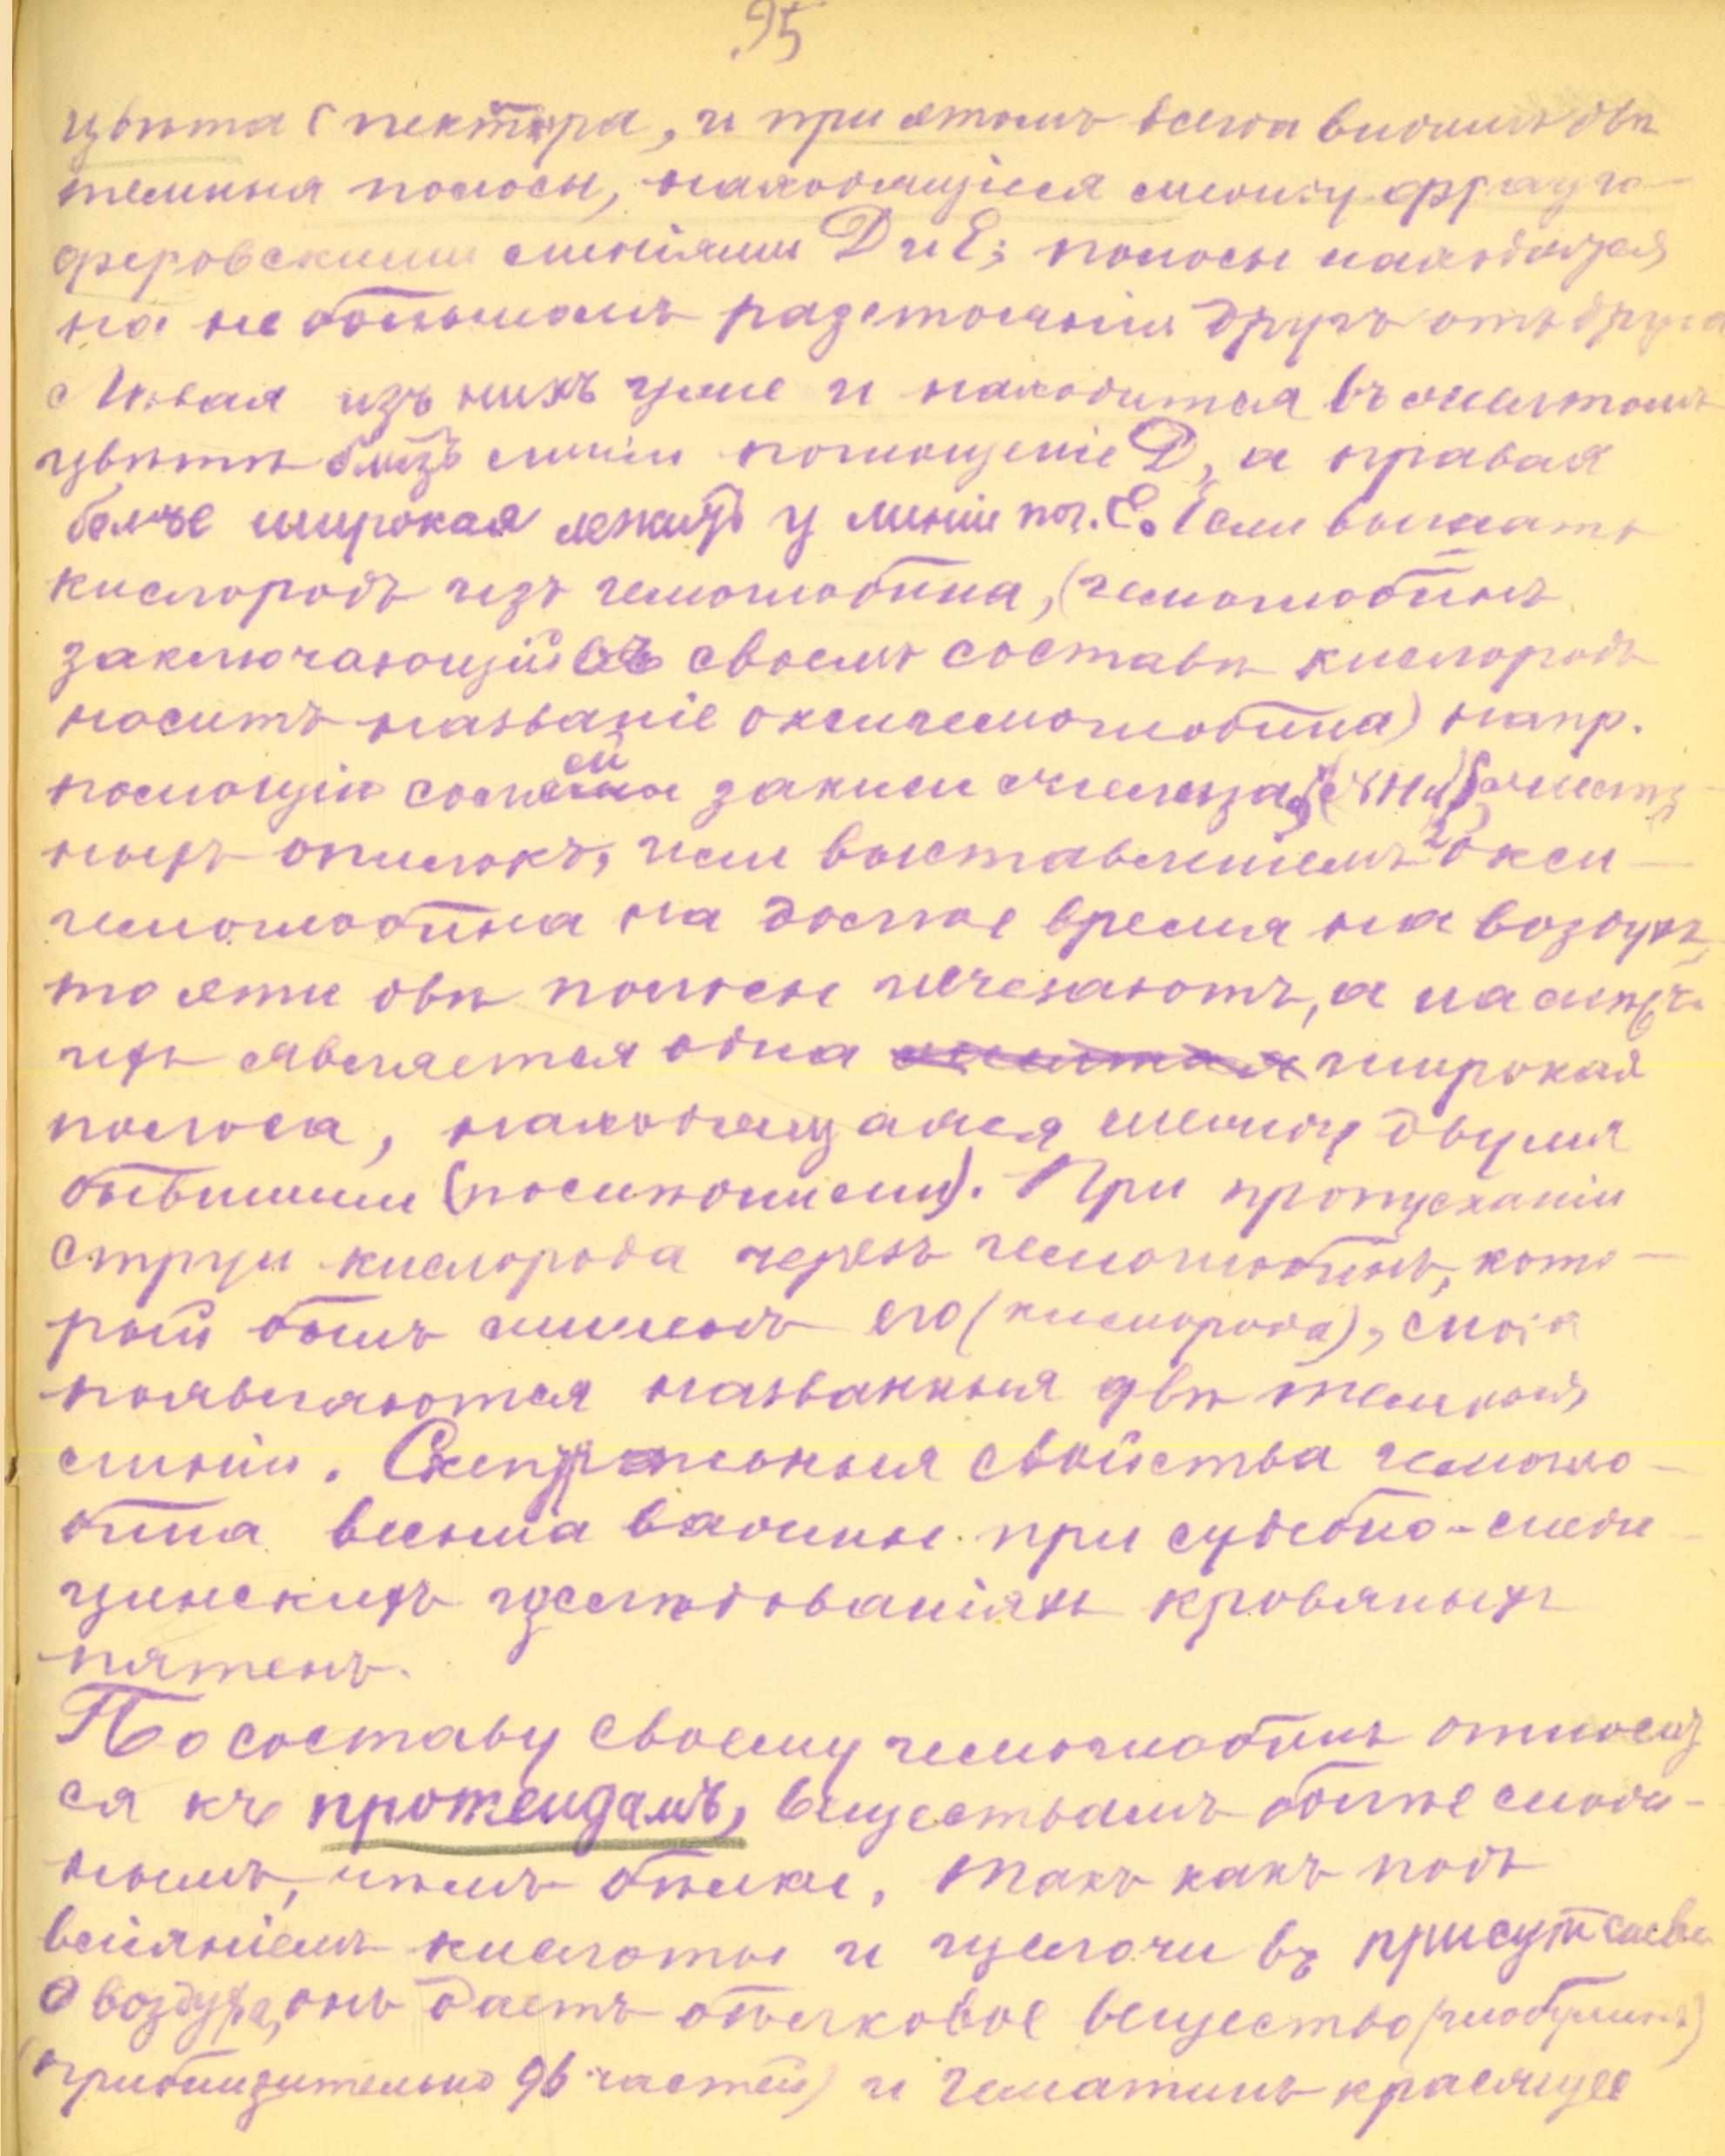 95
цвѣта спектра, и при этомъ всегда видимъ двѣ
темныя полосы, находящіяся между фрауго-
феровскими линіями D и E; полосы находятся
на не большомъ разстояніи другъ отъ друга
Лѣвая изъ нихъ уже и находится въ желтомъ
цвѣтѣ близъ линіи поглощеніе D, а правая
болѣе широкая лежитъ у линіи пог. E. Если выгнать
кислородъ изъ гемоглобина, (гемоглобинъ
заключающій въ своемъ составѣ кислородъ
носитъ названіе оксигемоглобина) напр.
помощію солей закиси желѣза,
ныхъ опилокъ, или выставленіемъ окси-
гемоглобина на долгое время на воздухъ,
то эти двѣ полосы исчезаютъ, а на
ихъ является одна широкая
полоса, находящаяся между двумя
бывшими (посинѣлыми). При пропусканіи
струи кислорода черезъ гемоглобинъ, кото-
рый былъ лишенъ его (кислорода), снова
появляются названныя двѣ темныя
линіи. Спектральныя свойства гемогло-
бина весьма важны при судебно-меди-
цинскихъ изслѣдованіяхъ кровяныхъ
пятенъ.
По составу своему гемоглобинъ относит
ся къ протеидамъ, веществамъ болѣе слож-
нымъ, чѣмъ бѣлки, такъ какъ подъ
вліяніемъ кислоты и щелочи въ присутствіи
воздуха, онъ даетъ бѣлковое вещество (глобулинъ)
(приблизительно 96 частей) и гематинъ красящее